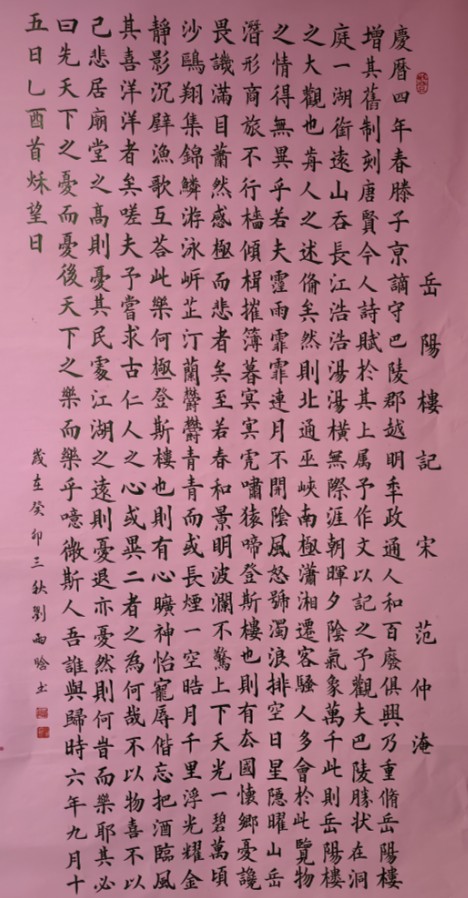 岳陽樓記 宋 范仲淹
慶曆四年春滕子京謫守巴陵郡越明秊政通人和百廢俱興乃重脩岳陽樓
增其舊制刻唐賢今人詩賦於其上属予作文以記之予觀夫巴陵勝狀在洞
庭一湖銜遠山吞長江浩浩湯湯橫無際涯朝暉夕陰氣象萬千此則岳陽樓
之大觀也歬人之述俻矣然則北通巫峽南極瀟湘遷客騷人多會於此覽物
之情得無異乎若夫霪雨霏霏連月不開陰風怒號濁浪排空日星隱曜山岳
潛形商旅不行檣傾楫摧簿暮冥冥虎嘯猿啼登斯樓也則有去國懷鄉憂讒
畏譏滿目蕭然感極而悲者矣至若春和景明波瀾不驚上下天光一碧萬頃
沙鷗翔集錦鱗游泳岸芷汀蘭鬱鬱青青而或長煙一空皓月千里浮光耀金
靜影沉璧漁歌互荅此樂何極登斯樓也則有心曠神怡寵辱偕忘把酒臨風
其喜洋洋者矣嗟夫予嘗求古仁人之心或異二者之為何哉不以物喜不以
己悲居廟堂之髙則憂其民處江湖之遠則憂退亦憂然則何旹而樂耶其必
曰先天下之憂而憂後天下之樂而樂乎噫微斯人吾誰與歸時六年九月十
五日乙酉首秌望日
歲在癸卯三秋劉雨書